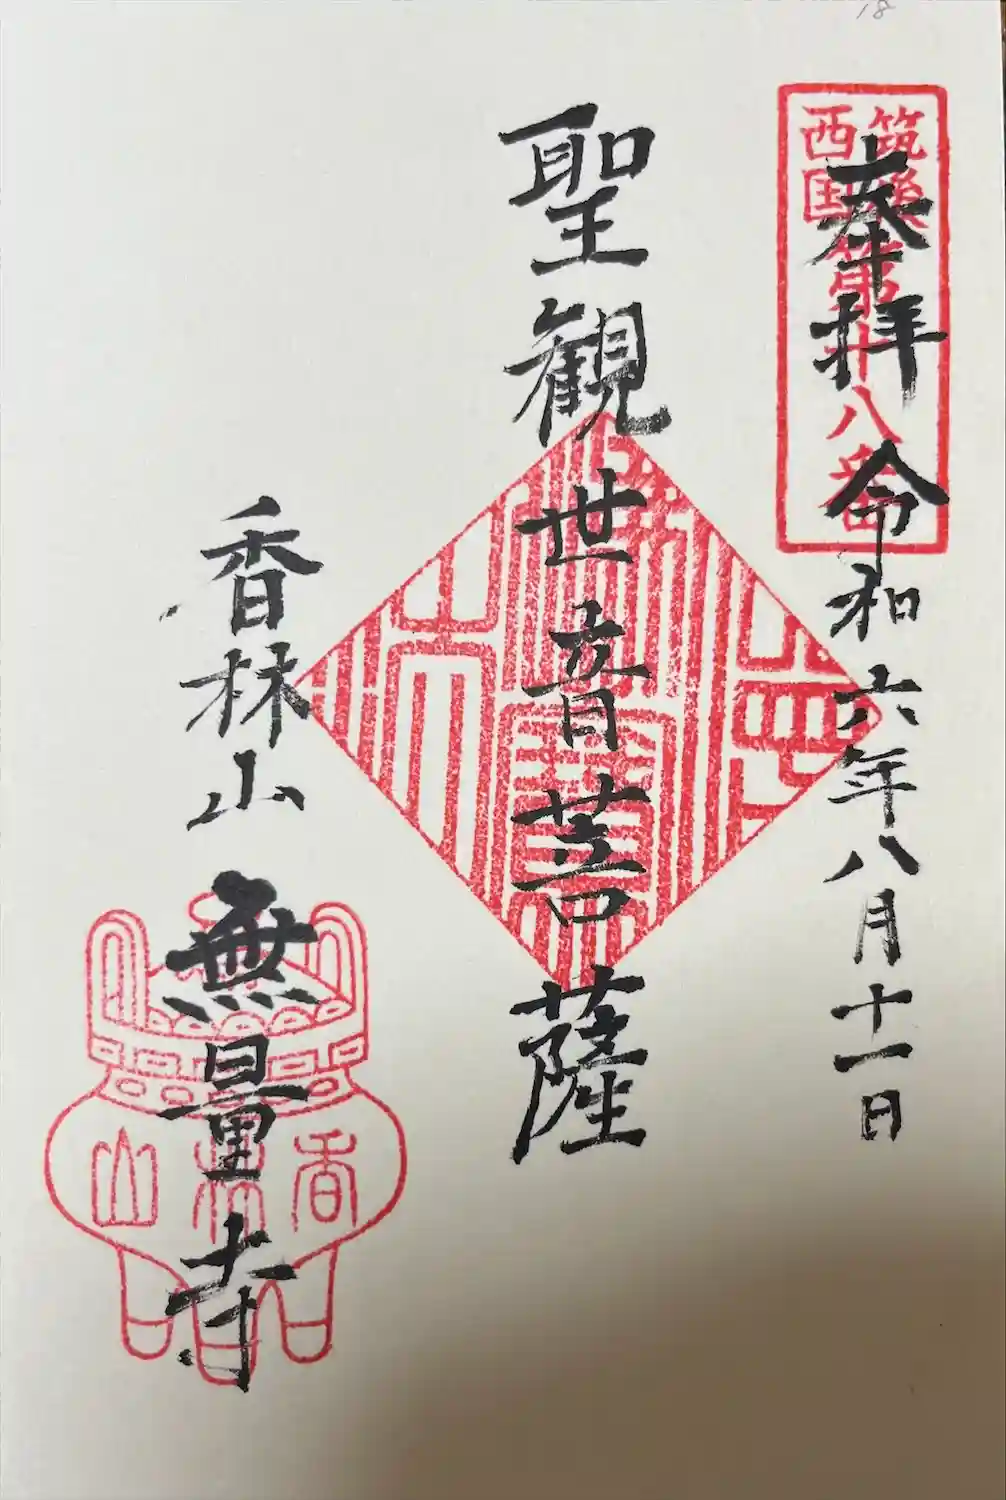 18
筑後
西国第十八番
奉拝 令和六年八月十一日
聖観世音菩薩
香林山 無量寺
香林山